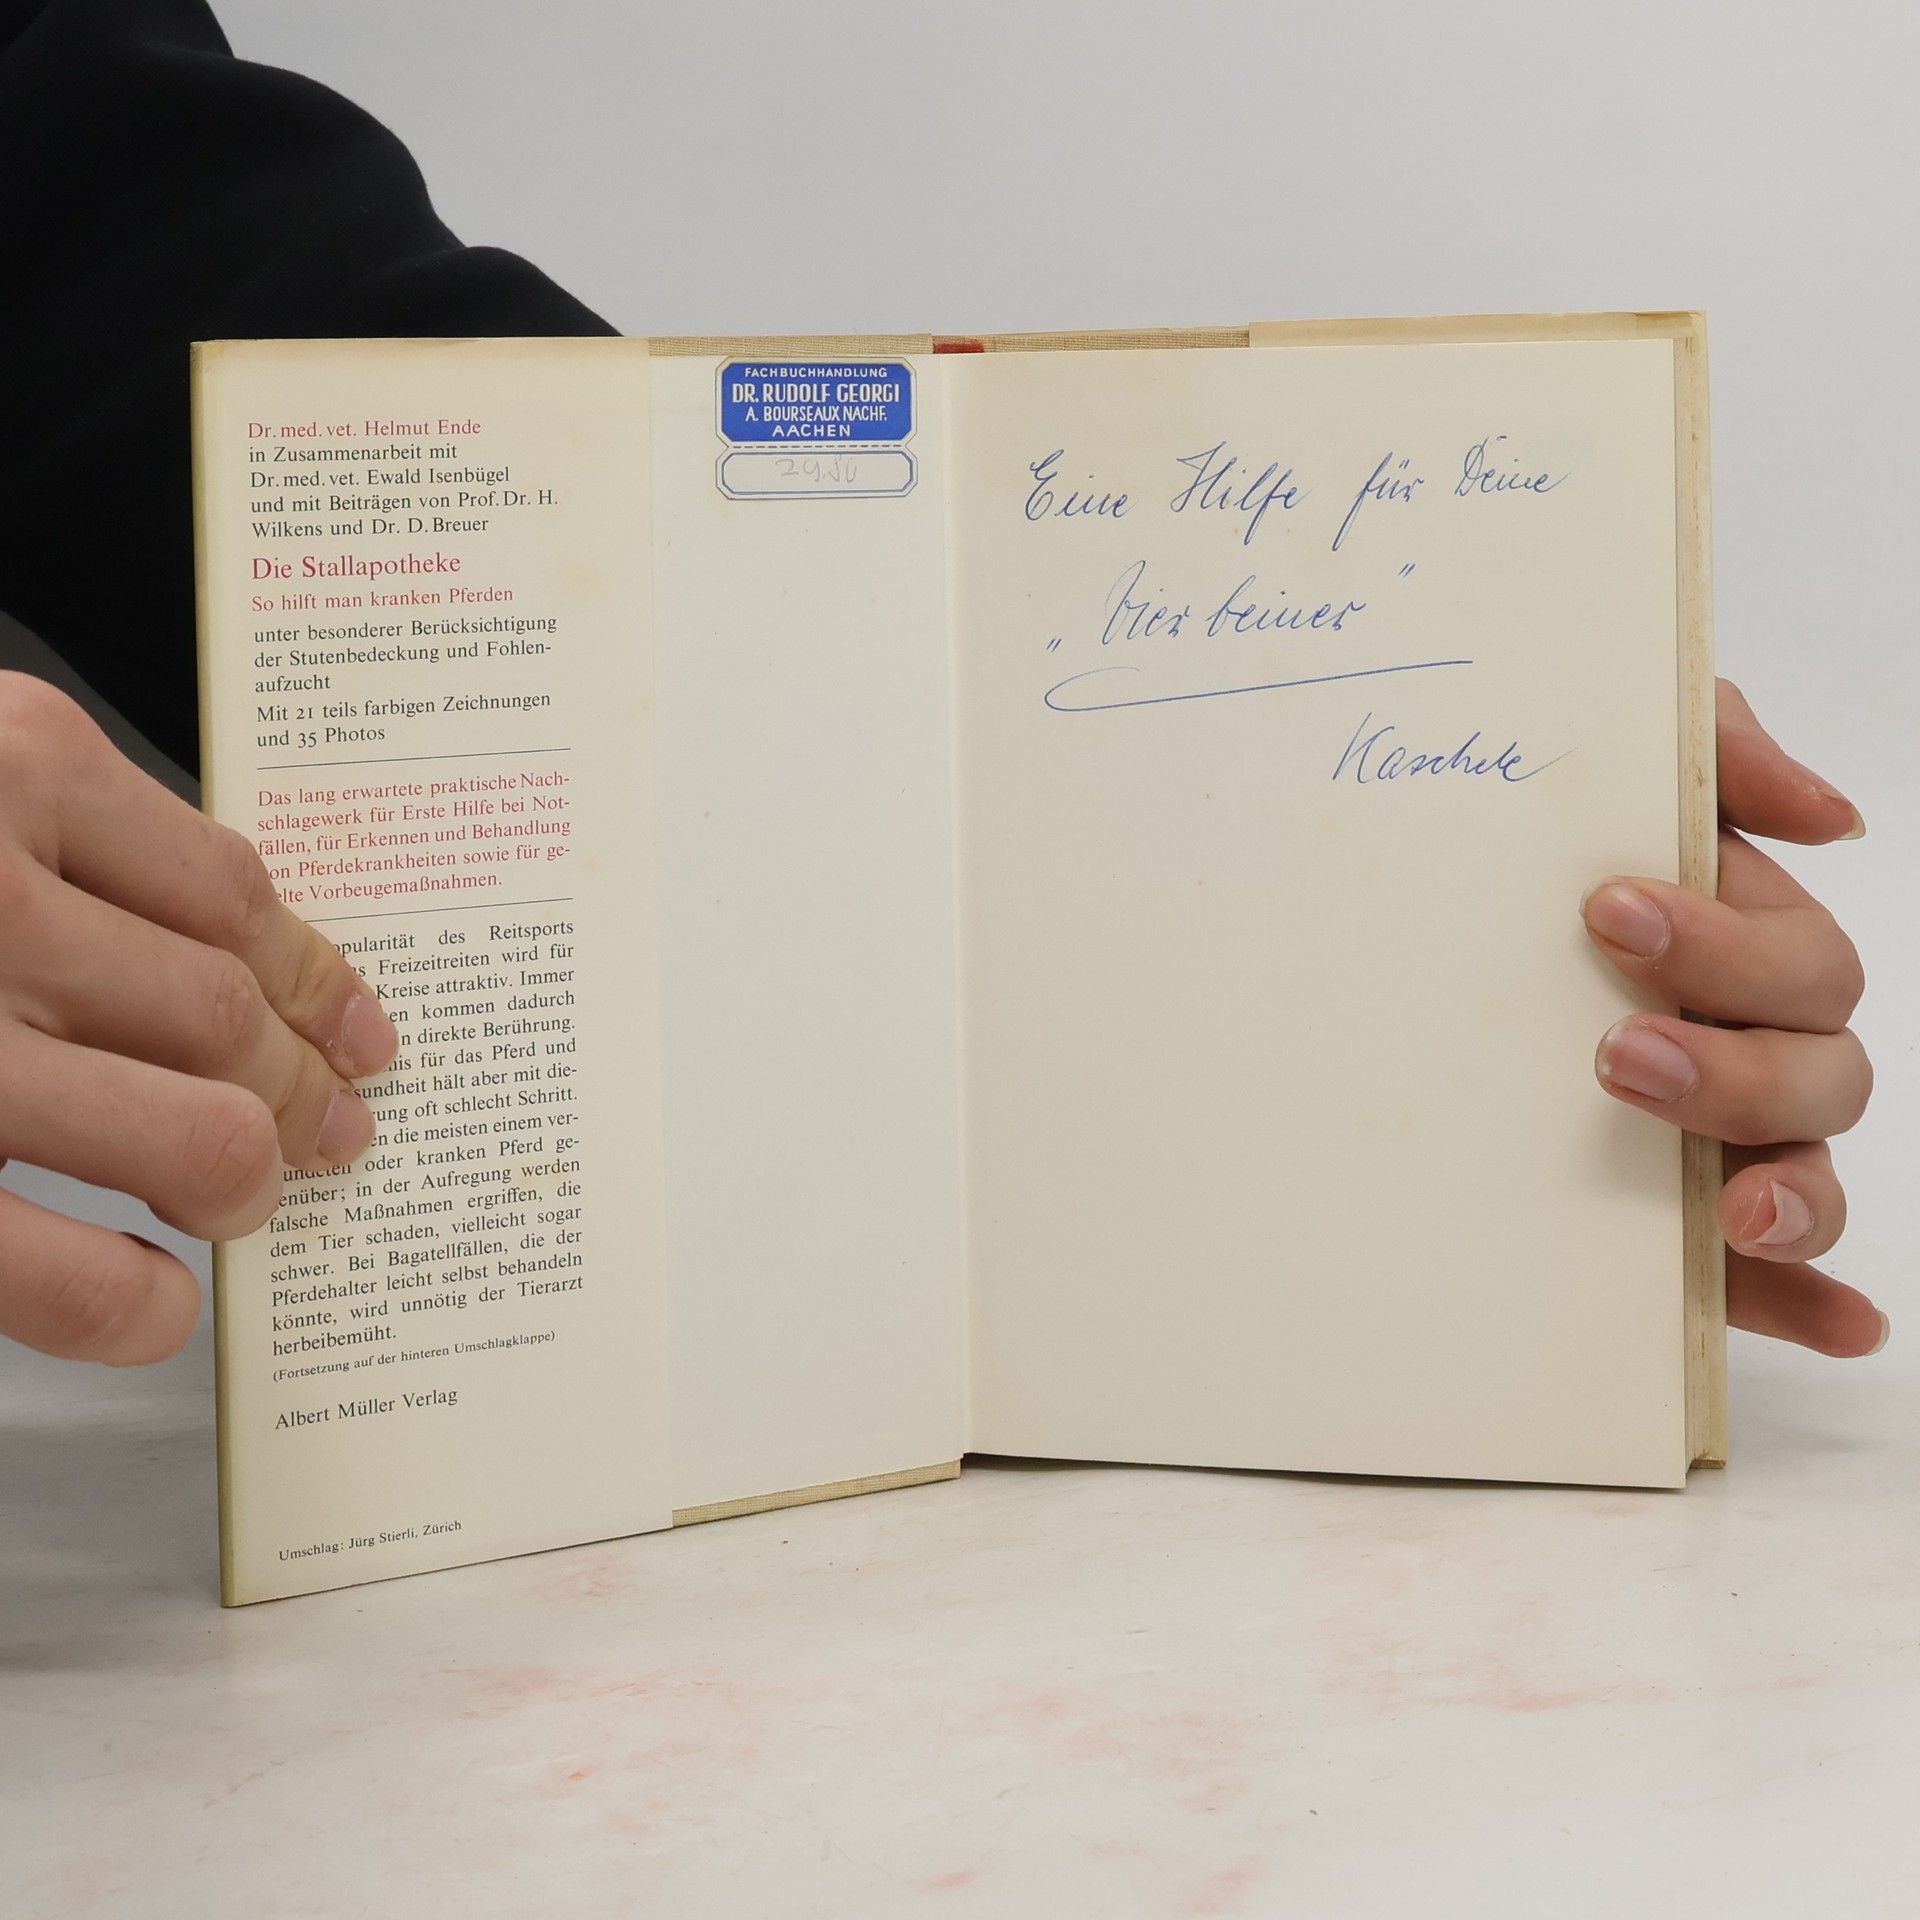 Dr. med. vet. Helmut Ende
in Zusammenarbeit mit
Dr. med. vet. Ewald Isenbügel
und mit Beiträgen von Prof. Dr. H.
Wilkens und Dr. D. Breuer
Die Stallapotheke
So hilft man kranken Pferden
unter besonderer Berücksichtigung
der Stutenbedeckung und Fohlen-
aufzucht
Mit 21 teils farbigen Zeichnungen
und 35 Photos
Das lang erwartete praktische Nach-
schlagewerk für Erste Hilfe bei Not-
fällen, für Erkennen und Behandlung
on Pferdekrankheiten sowie für ge-
elte Vorbeugemaßnahmen.
opularität des Reitsports
s Freizeitreiten wird für
Kreise attraktiv. Immer
en kommen dadurch
n direkte Berührung.
nis für das Pferd und
sundheit hält aber mit die-
rung oft schlecht Schritt.
en die meisten einem ver-
undeten oder kranken Pferd ge-
enüber; in der Aufregung werden
falsche Maßnahmen ergriffen, die
dem Tier schaden, vielleicht sogar
schwer. Bei Bagatellfällen, die der
Pferdehalter leicht selbst behandeln
könnte, wird unnötig der Tierarzt
herbeibemüht.
(Fortsetzung auf der hinteren Umschlagklappe)
Albert Müller Verlag
Umschlag: Jürg Stierli, Zürich
FACHBUCHHANDLUNG
DR. RUDOLF GEORGI
A. BOURSEAUX NACHF.
AACHEN
29.80
Eine Hilfe für Deine
„Vierbeiner"